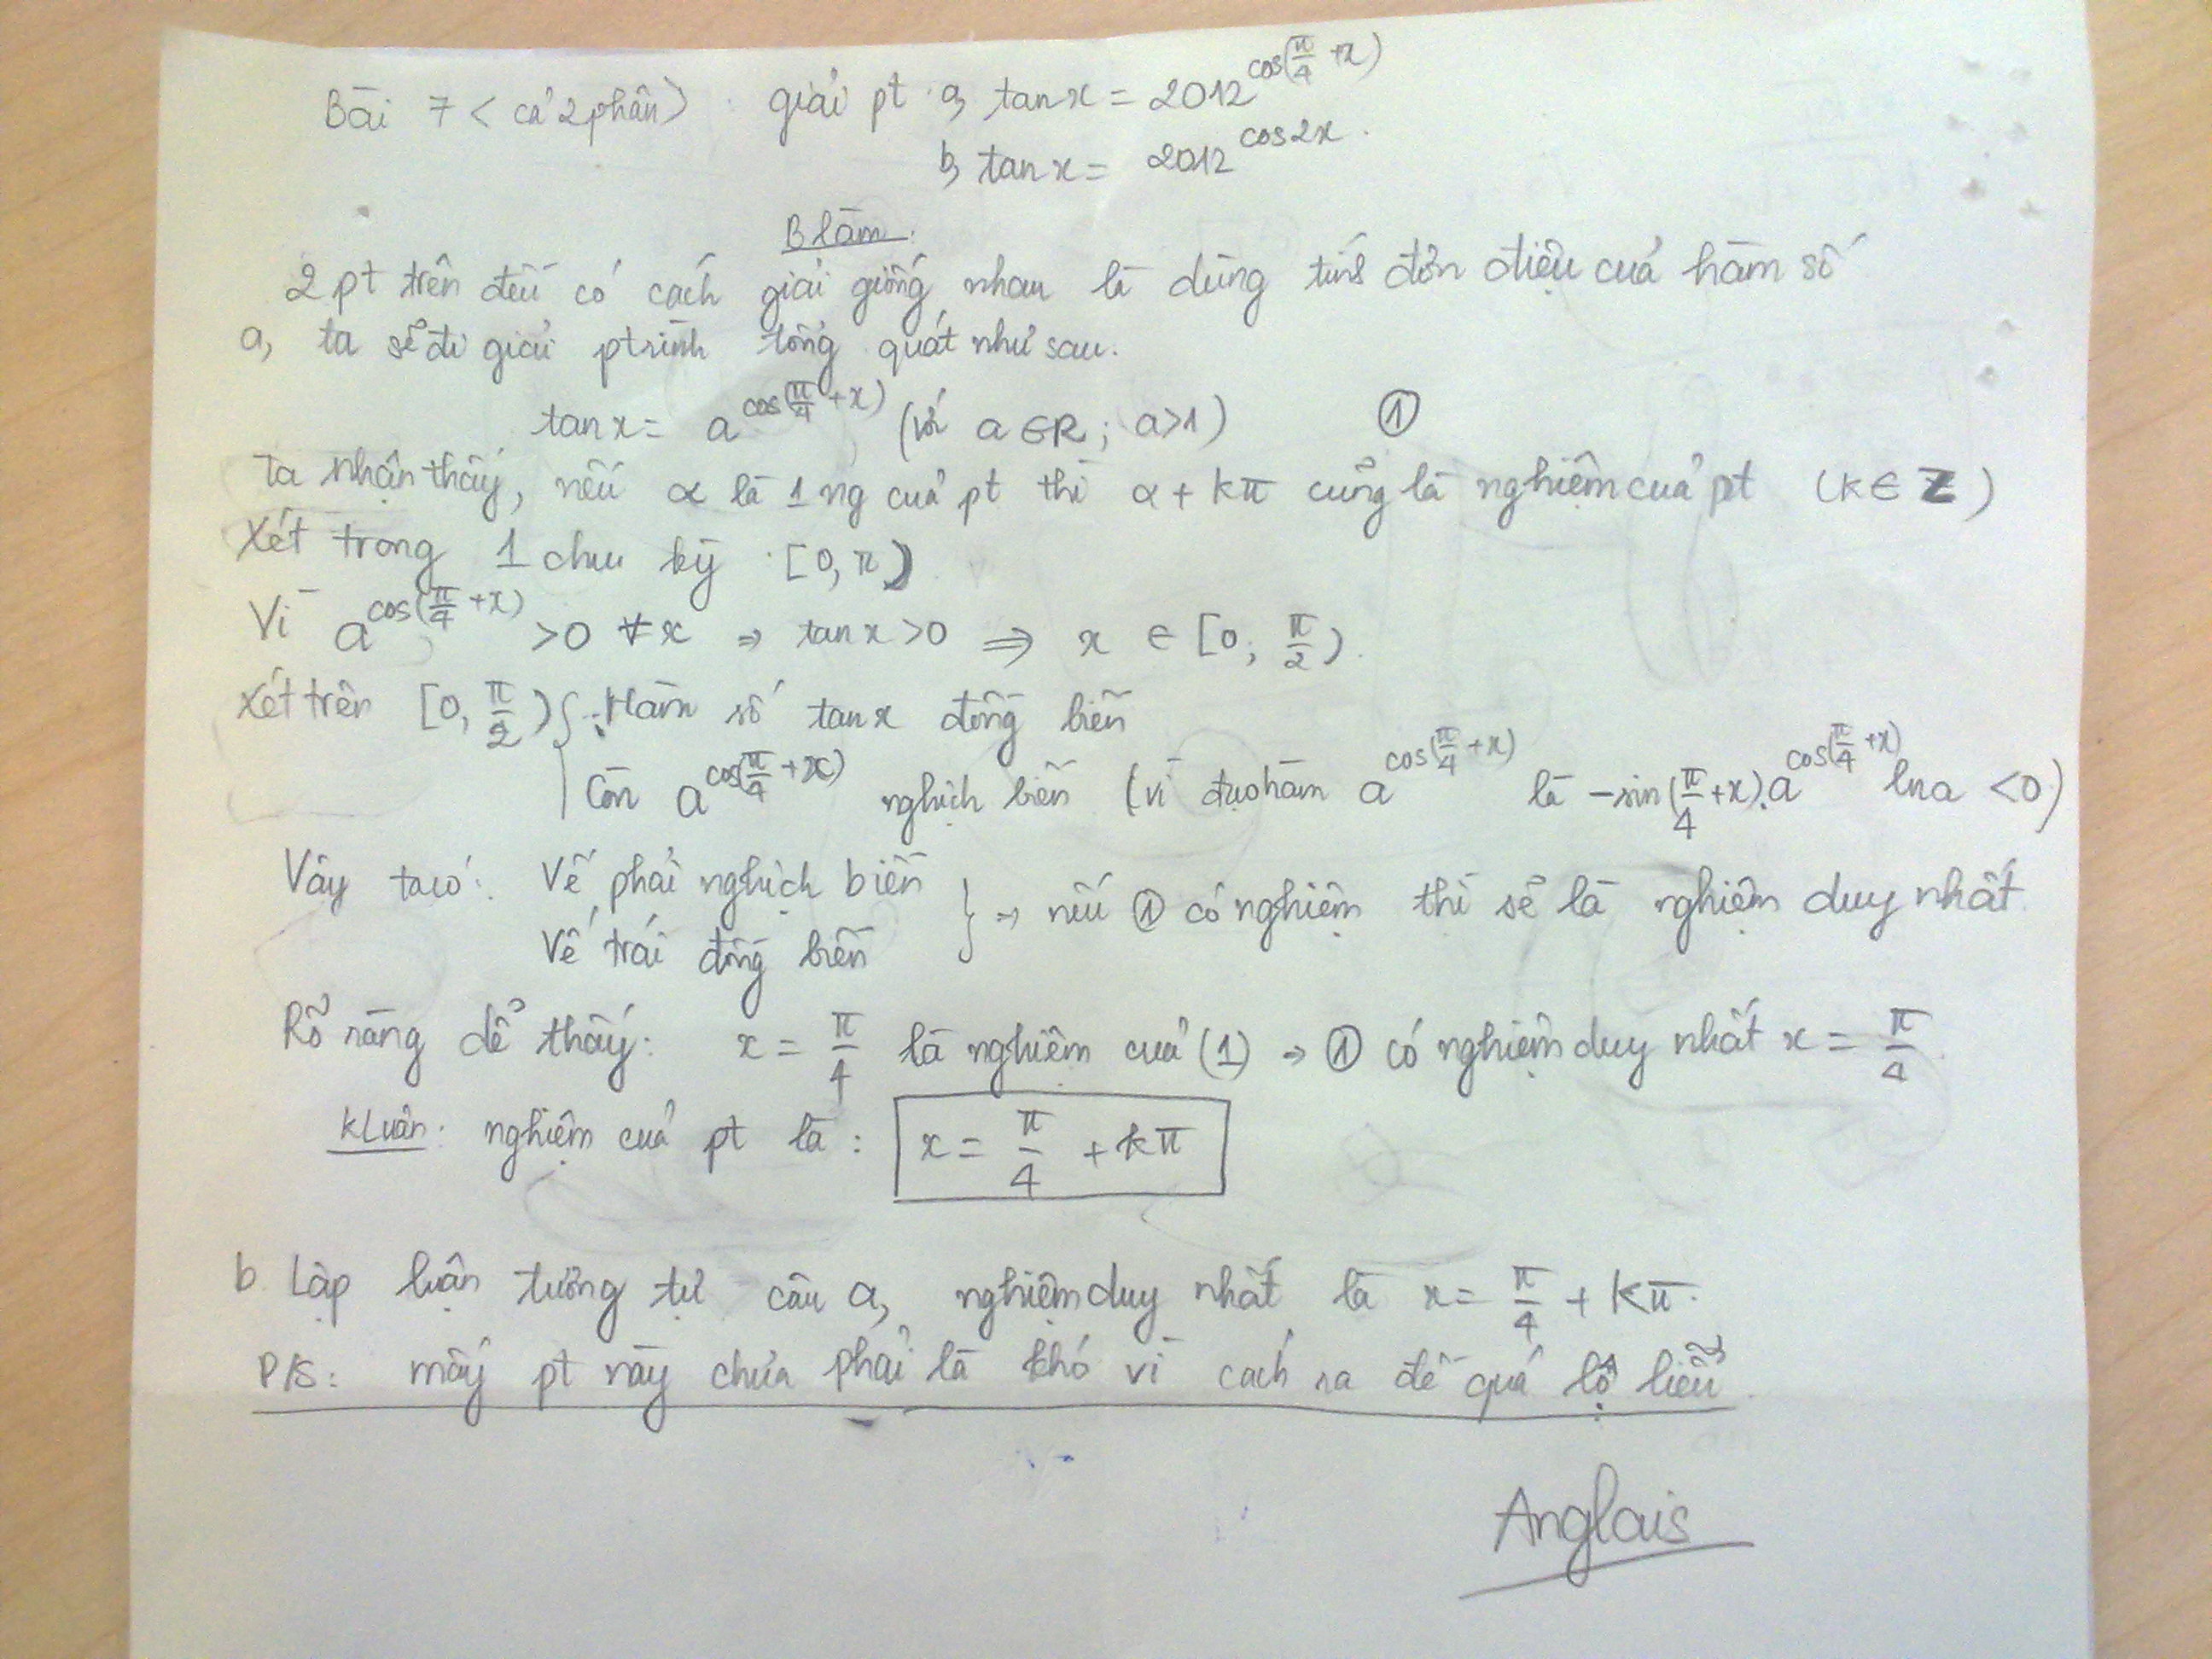 Bài 7 < cả 2 phần> giải pt a, tan x = 2012^cos(π/4 + x)
b, tan x = 2012^cos2x.
B làm:
2 pt trên đều có cách giải giống nhau là dùng tính đơn điệu của hàm số
a, ta sẽ đi giải ptrình tổng quát như sau.
tan x = a^cos(π/4 + x) (với a ∈ R; a>1) ①
Ta nhận thấy, nếu α là 1 ng của pt thì α + kπ cũng là nghiệm của pt (k ∈ Z)
Xét trong 1 chu kỳ [0, π)
Vì a^cos(π/4 + x) > 0 ∀x ⇒ tan x > 0 ⇒ x ∈ [0; π/2).
Xét trên [0, π/2) { Hàm số tan x đồng biến
Còn a^cos(π/4 + x) nghịch biến (vì đạo hàm a^cos(π/4 + x) là -sin(π/4 + x).a^cos(π/4 + x) lna < 0)
Vậy ta có: Vế phải nghịch biến
Vế trái đồng biến } → nếu ① có nghiệm thì sẽ là nghiệm duy nhất.
Rõ ràng dễ thấy: x = π/4 là nghiệm của (1) → ① có nghiệm duy nhất x = π/4.
KLuận: nghiệm của pt là: x = π/4 + kπ
b. Lập luận tương tự câu a, nghiệm duy nhất là x = π/4 + kπ.
P/S: mấy pt này chưa phải là khó vì cách ra đề quá lộ liễu.
Anglais